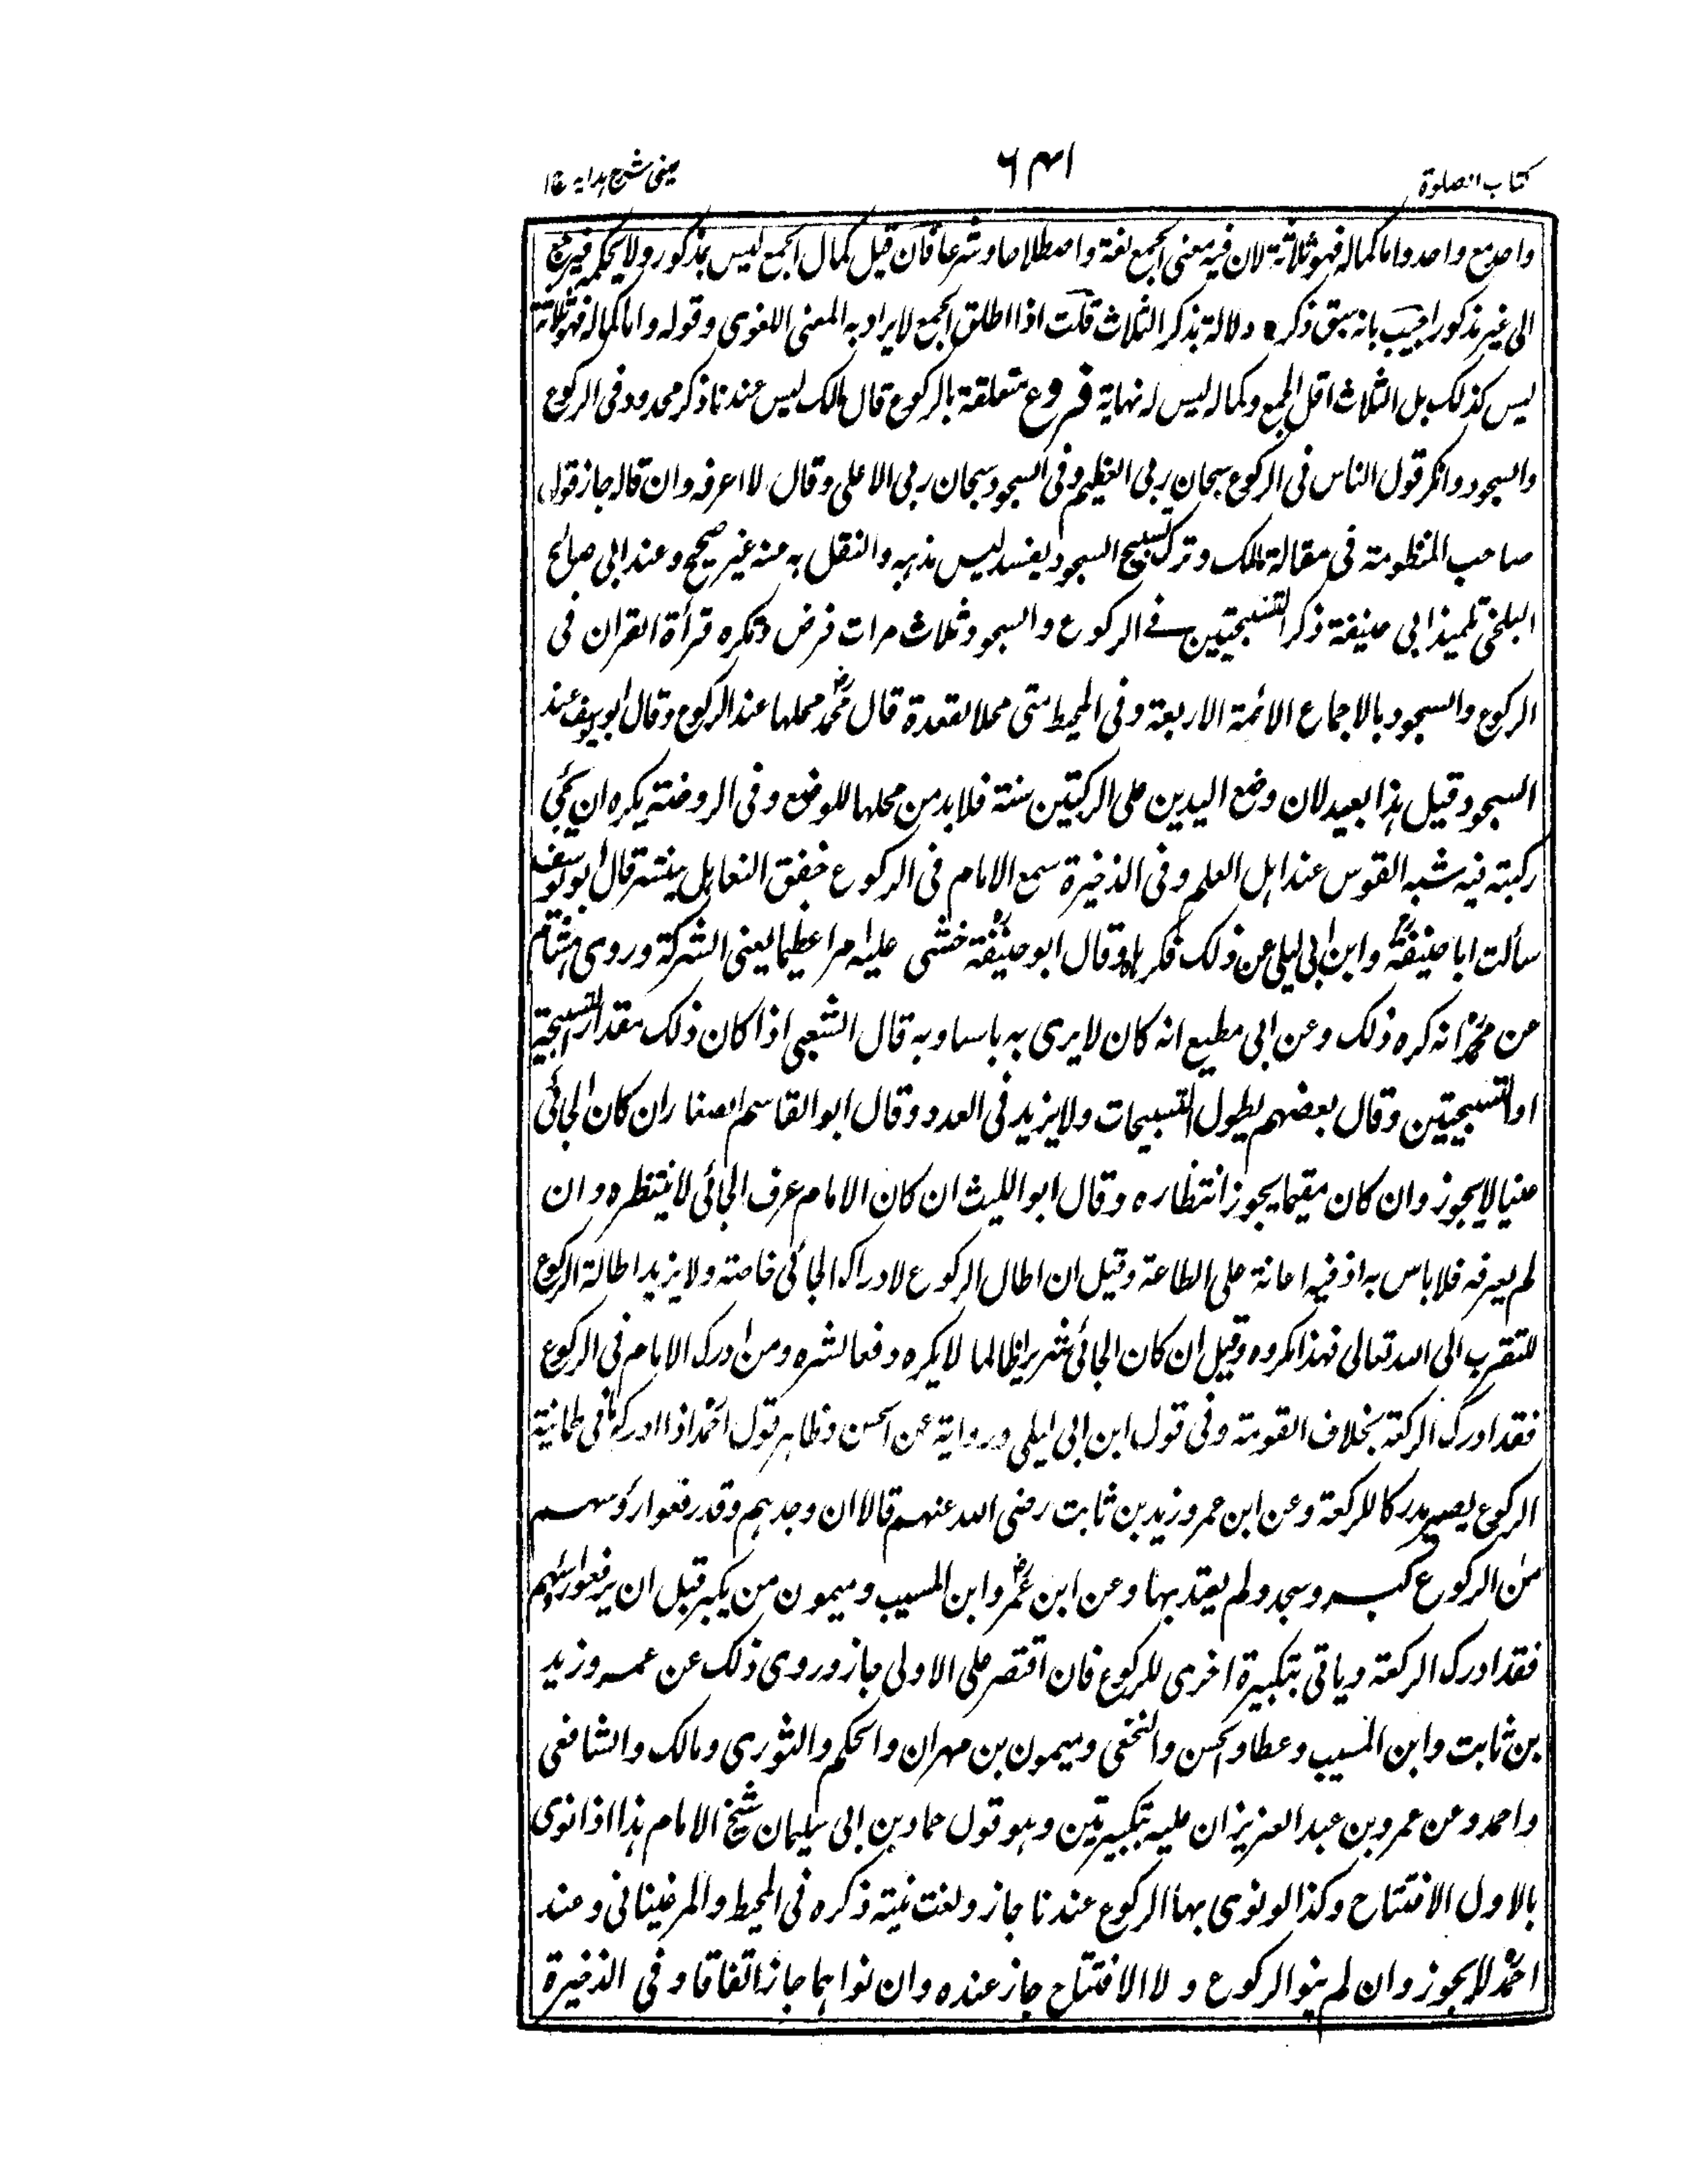 كتاب الصلوة
٦٤١
عينى شرح هدايه ج١
واحد مع واحد واما كماله فهو ثلاثة لان فيه معنى الجمع لغة واصطلاحا وشرعا فان قيل كمال الجمع ليس بمذكور ولا يحكمه فيرجع
الى غير مذكور اجيب بانه سبق ذكره دلالة بذكر الثلاث قلت اذا اطلق الجمع لا يراد به المعنى اللغوى وقوله واما كماله فهو ثلاثة
ليس كذلك بل الثلاث اقل الجمع وكماله ليس له نهاية فروع متعلقة بالركوع قال مالك ليس عندنا ذكر محدود فى الركوع
والسجود وانكر قول الناس فى الركوع سبحان ربى العظيم وفى السجود سبحان ربى الاعلى وقال لا اعرفه وان قاله جاز قول
صاحب المنظومة فى مقالة مالك وترك تسبيح السجود يفسد ليس مذهبه والنقل به عنه غير صحيح وعند ابى صالح
البلخى تلميذ ابى حنيفة ذكر التسبيحتين فى الركوع والسجود ثلاث مرات فرض وتكره قرأة القران فى
الركوع والسجود بالاجماع الائمة الاربعة وفى المحيط متى محلا لقعدة قال محمدؒ محلها عند الركوع وقال ابو يوسف عند
السجود قيل هذا بعيد لان وضع اليدين على الركبتين سنة فلا بد من محلها للوضع وفى الروضة يكره ان يحنى
ركبته فيه شبه القوس عند اهل العلم وفى الذخيرة سمع الامام فى الركوع خفق النعال هل ينتظر قال ابو يوسف
سألت ابا حنيفةؒ وابن ابى ليلى عن ذلك فكرهاه وقال ابو حنيفةؒ خشى عليه امرا عظيما يعنى الشركة وروى هشام
عن محمدؒ انه كره ذلك وعن ابى مطيع انه كان لا يرى به باسا وبه قال الشعبى اذا كان ذلك مقدار التسبيحة
او التسبيحتين وقال بعضهم يطول التسبيحات ولا يزيد فى العدد وقال ابو القاسم الصفار ان كان الجائى
غنيا لا يجوز وان كان مقيما يجوز انتظاره وقال ابو الليث ان كان الامام عرف الجائى لا ينتظره وان
لم يعرفه فلا باس به اذ فيه اعانة على الطاعة وقيل ان اطال الركوع لادراك الجائى خاصة ولا يزيد اطالة الركوع
للتقرب الى الله تعالى فهذا مكروه وقيل ان كان الجائى شريرا ظالما لا يكره دفعا لشره ومن ادرك الامام فى الركوع
فقد ادرك الركعة بخلاف القومة وفى قول ابن ابى ليلى ورواية عن الحسن وظاهر قول احمد اذا ادركه فى طمانية
الركوع يصير مدركا للركعة وعن ابن عمر وزيد بن ثابت رضى الله عنهم قالا ان وجدهم وقد رفعوا رؤسهم
من الركوع كبر وسجد ولم يعتد بها وعن ابن عمرؓ وابن المسيب وميمون من يكبر قبل ان يرفعوا رأسهم
فقد ادرك الركعة وياتى بتكبيرة اخرى للركوع فان اقتصر على الاولى جاز وروى ذلك عن عمر وزيد
بن ثابت وابن المسيب وعطا والحسن والنخعى وميمون بن مهران والحكم والثورى ومالك والشافعى
واحمد وعن عمرو بن عبد العزيز ان عليه تكبيرتين وهو قول حماد بن ابى سليمان شيخ الامام هذا اذا نوى
بالاول الافتتاح وكذا لو نوى بها الركوع عندنا جاز ولغت نيته ذكره فى المحيط والمرغينانى وعند
احمدؒ لا يجوز وان لم ينو الركوع ولا الافتتاح جاز عنده وان نواهما جاز اتفاقا وفى الذخيرة